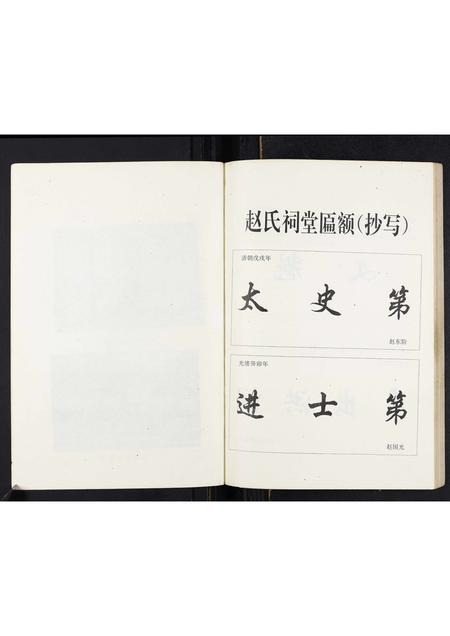 赵氏祠堂匾额(抄写)
清朝戊戌年
太史第
赵东阶
光绪癸卯年
进士第
赵国光